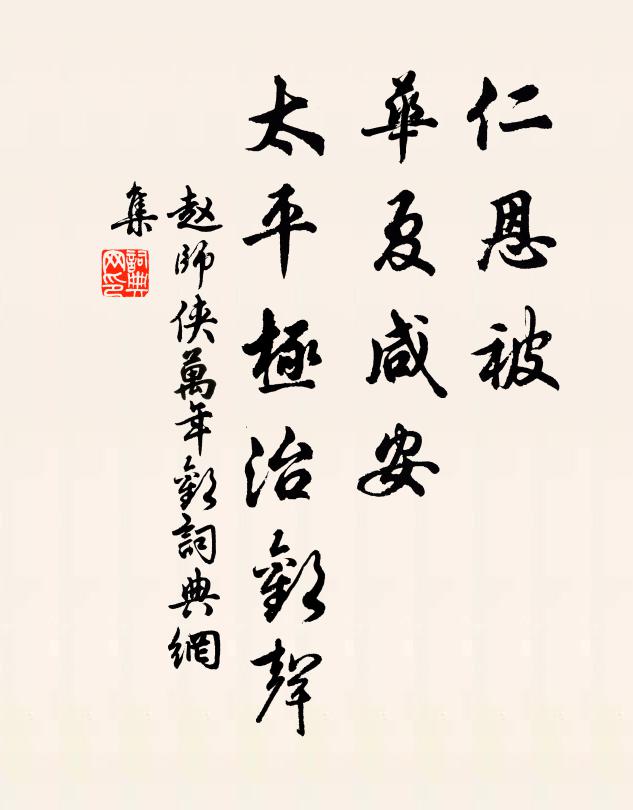 仁恩被
華夏咸安
太平極治歡聲
赵師俠萬年歡詞典網
集
詞典
网印